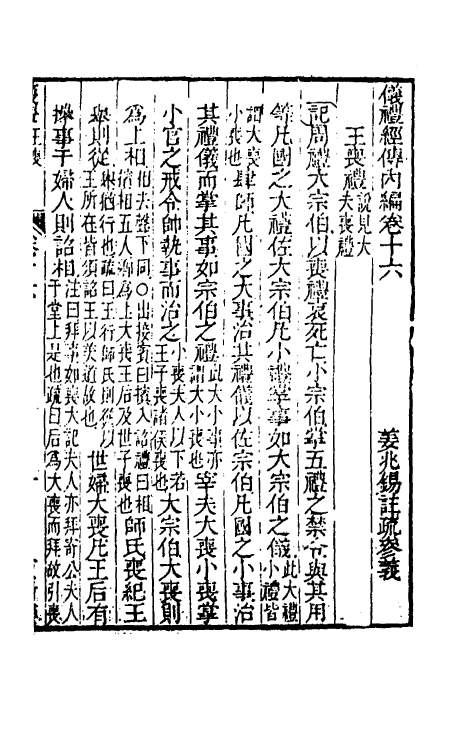 儀禮經傳內編卷十六
姜兆錫註疏參義
王喪禮說見大夫喪禮
記周禮大宗伯以喪禮哀死亡小宗伯掌五禮之禁令與其用
等凡國之大禮佐大宗伯凡小禮掌事如大宗伯之儀此大禮小禮皆
謂大喪小喪也肆師凡國之大事治其禮儀以佐宗伯凡國之小事治
其禮儀而掌其事如宗伯之禮此大事小事亦謂大小喪也宰夫大喪小喪掌
小官之戒令帥執事而治之小喪夫人以下若王子喪諸侯喪也大宗伯大喪則
為上相相去聲下同○出接賓曰擯入詔禮曰相擯相五人為上大喪王后及世子喪也師氏喪紀王
舉則從舉猶行也疏曰王行師氏則從以王所在皆須詔王以美道故也世婦大喪凡王后有
操事于婦人則詔相注曰拜謝如喪大記夫人亦拜寄公夫人于堂上是也疏曰后為大喪而拜故引喪